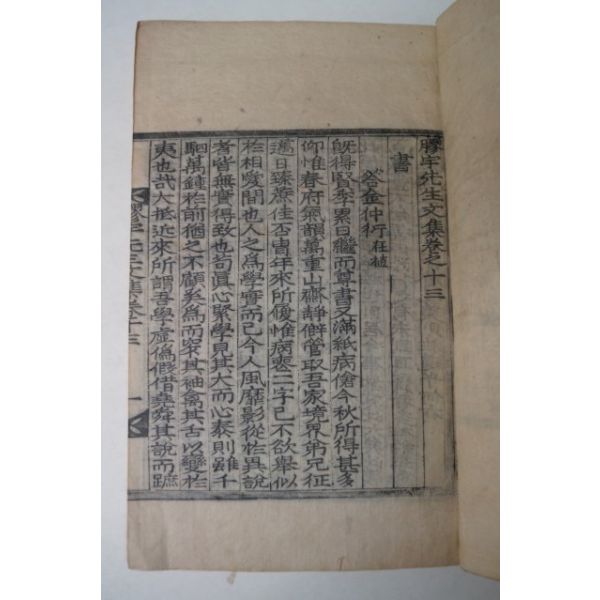 膠宇先生文集卷之十三
書
答金仲衍在植
旣得賢季累日繼而尊書又滿紙病傖今秋所得甚多
仰惟春府氣韻萬重山齋靜僻管取吾家境界第兄征
邁日臻蔗佳否冑年來所履惟病衷二字已不欲舉似
於相愛間也人之爲學實而已今人風靡影從於異說
者皆無實得致也苟眞心緊學見其大而心泰則雖千
駟萬鍾於前猶之不顧矣爲而突其袖禽其舌以變於
夷也哉大抵近來所謂吾學虛僞假借堯舜其說而蹠
膠宇先生文集卷十三
一